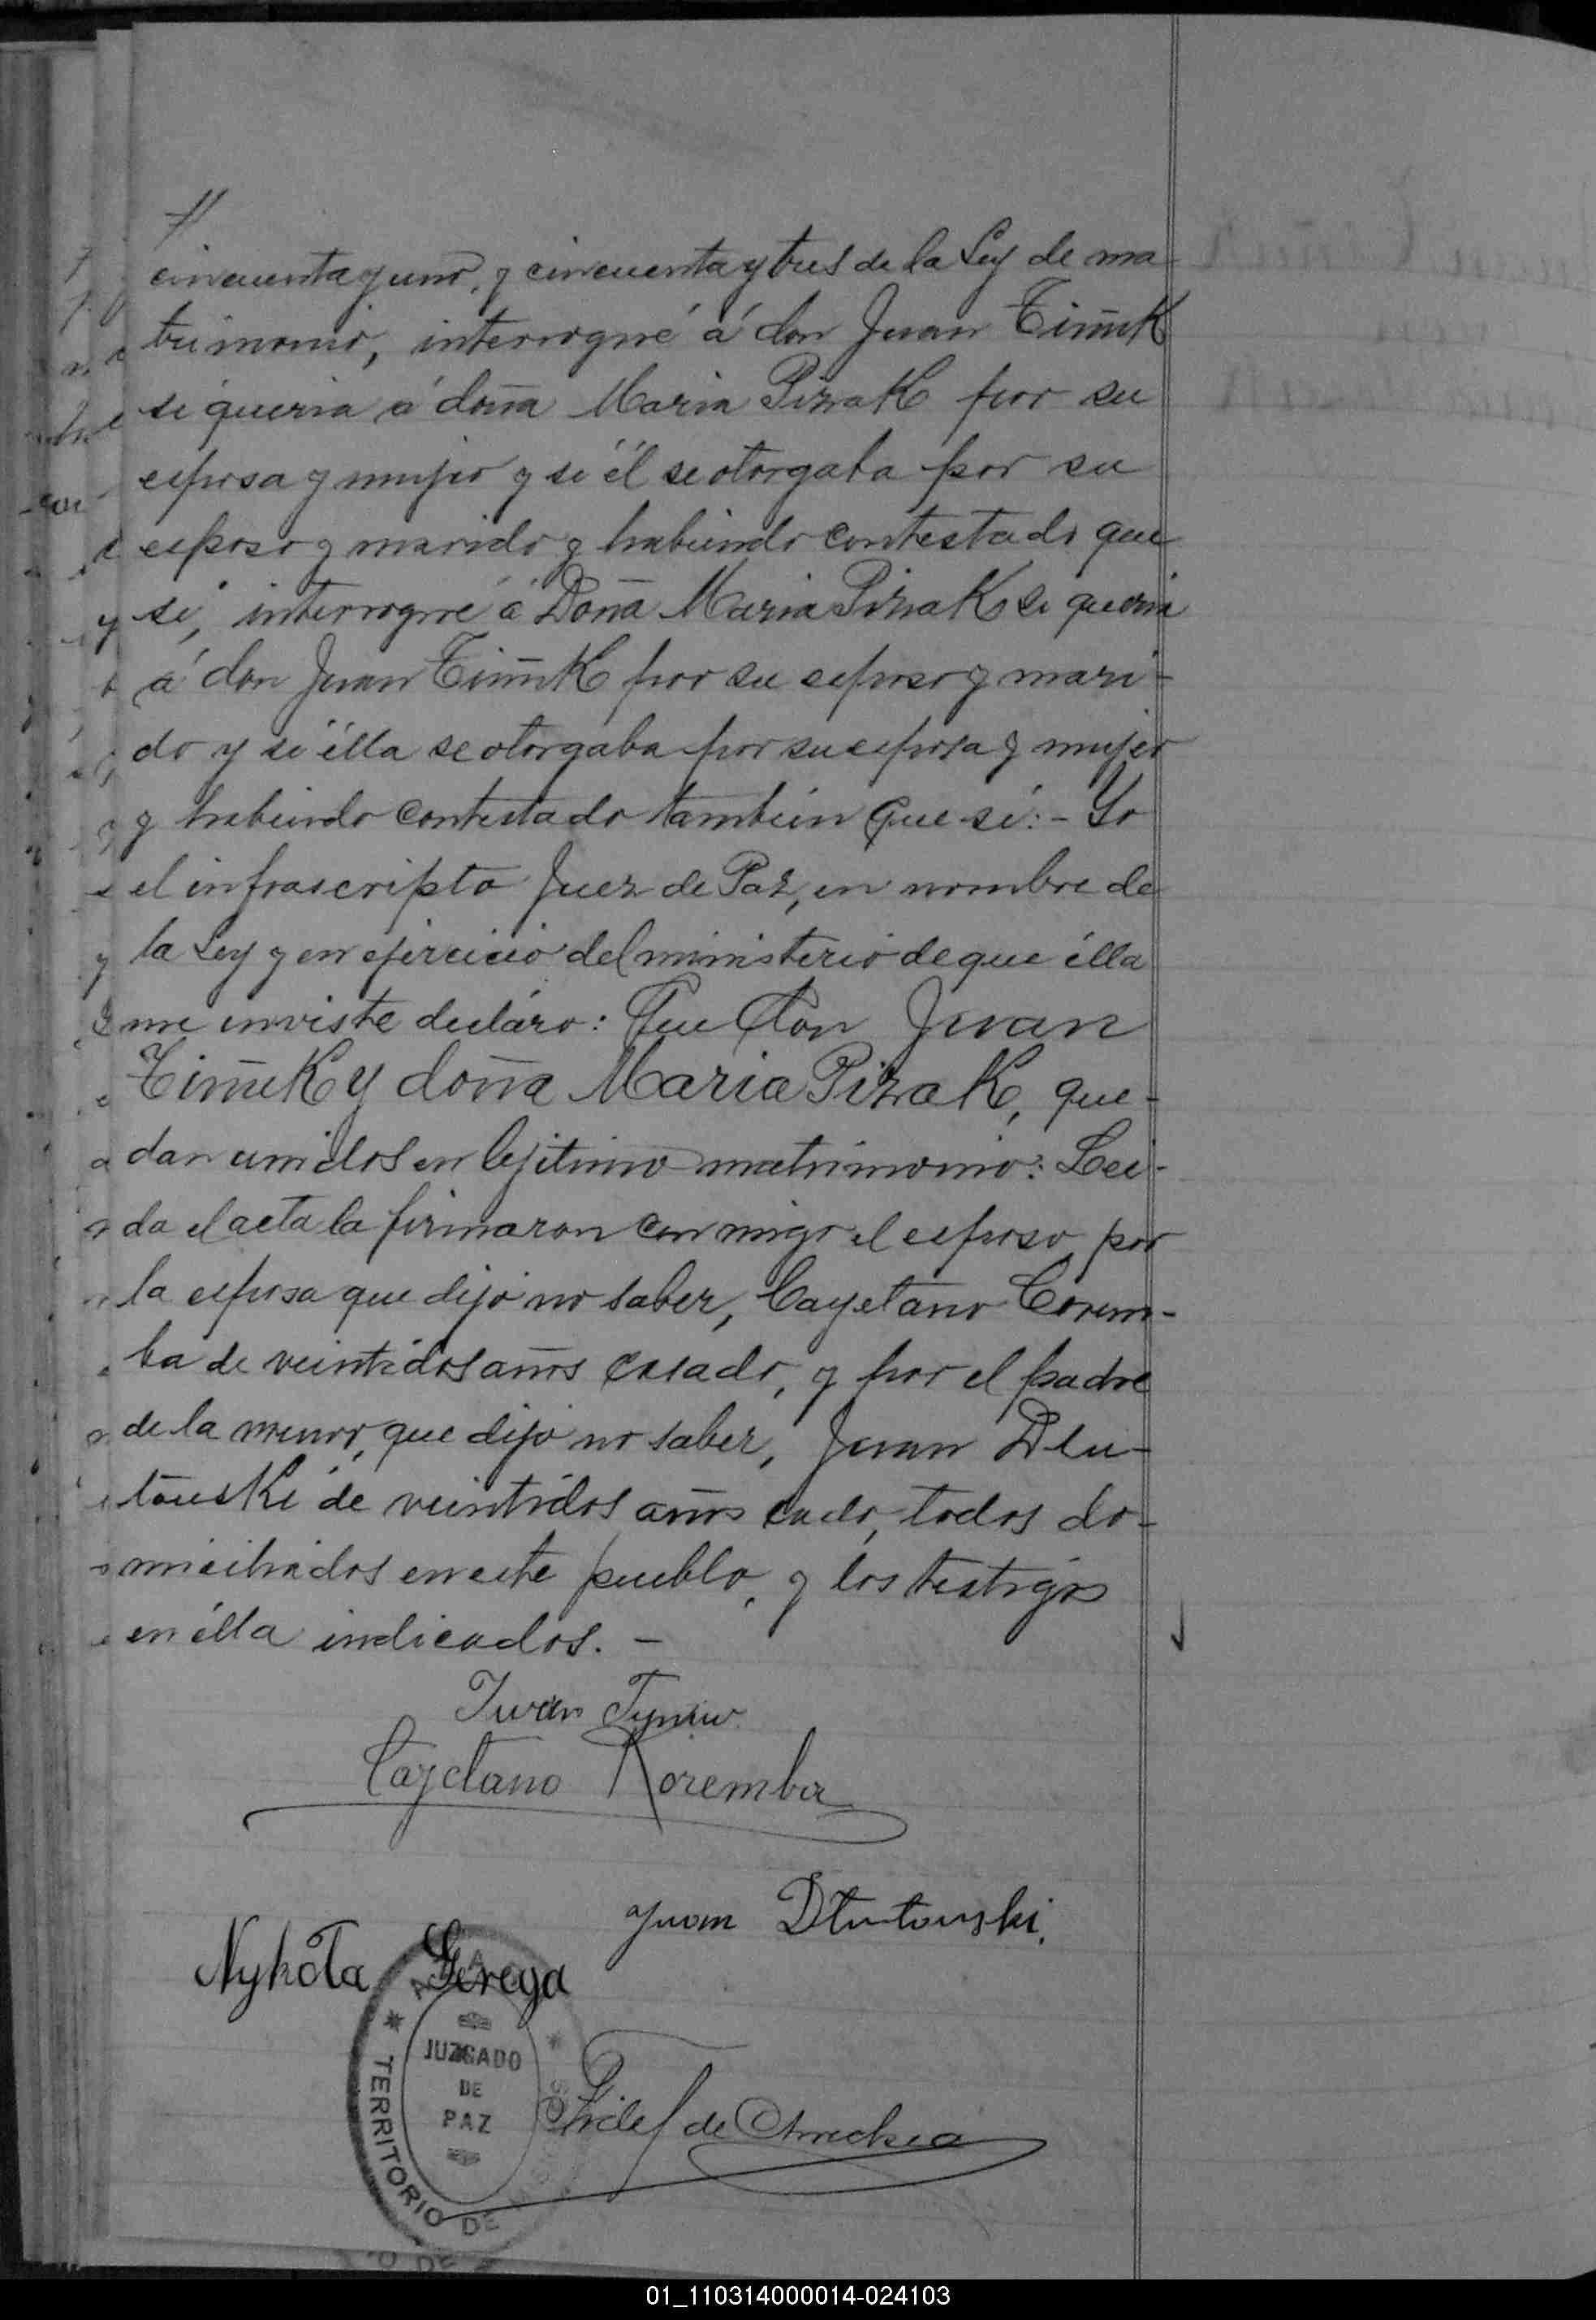 cincuenta y uno, y cincuenta y tres de la Ley de ma-
trimonio, interrogué á don Juan Timñk
si queria á doña Maria Pizrak por su
esposa y mujer y si él se otorgaba por su
esposo y marido y habiendo contestado que
si, interrogué á Doña Maria Pizrak si queria
á don Juan Timñk por su esposo y mari-
do y si élla se otorgaba por su esposa y mujer
y habiendo contestado tambien que si:- Yo
el infrascripto Juez de Paz, en nombre de
la Ley y en ejercicio del ministerio de que élla
me inviste decláro: Que Don Juan
y doña Maria Pizrak, que-
dan unidos en lejitimo matrimonio: Lei-
da el acta la firmaron conmigo el esposo, por
la esposa que dijo no saber, Cayetano Corem-
ba de veintidos años casado, y por el padre
de la menor, que dijo no saber, Juan Dlu-
touski de veintidos años cado, todos do-
miciliados en este pueblo, y los testigos
en élla indicados. -
Iwan
Cayetano Koremba
Juan Dlutouski.
Nykola Gerega
JUZGADO
DE
PAZ
TERRITORIO DE
de
01_110314000014-024103